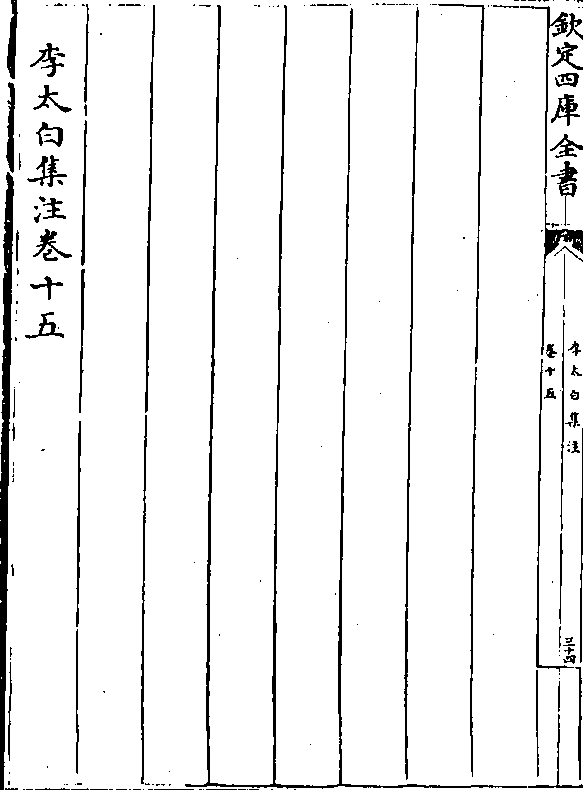 欽定四庫全書
李太白集注
卷十五
三十四
李太白集注卷十五